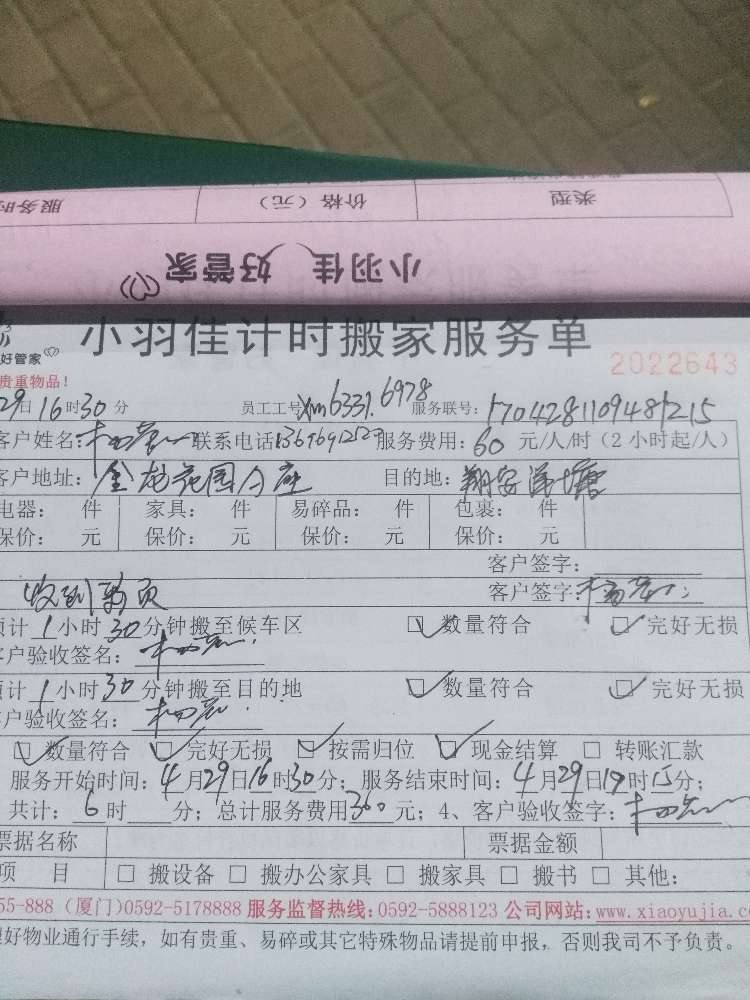 类型 价格（元） 服务时
小羽佳 好管家
好管家
小羽佳计时搬家服务单
2022643
贵重物品！
29日16时30分 员工工号 xm6331.6978 服务联号：
客户姓名： 联系电话 服务费用：60元/人/时（2小时起/人）
客户地址：金龙花园 座 目的地：翔安
电器： 件 家具： 件 易碎品： 件 包裹： 件
保价： 元 保价： 元 保价： 元 保价： 元
客户签字：
收到 客户签字：
预计1小时30分钟搬至候车区 ☑数量符合 ☑完好无损
客户验收签名：
预计1小时30分钟搬至目的地 ☑数量符合 ☑完好无损
客户验收签名：
☑数量符合 ☑完好无损 ☑按需归位 ☑现金结算 □转账汇款
服务开始时间：4月29日16时30分；服务结束时间：4月29日19时15分；
共计：6时 分；总计服务费用360元；4、客户验收签字：
票据名称 票据金额
项 目 □搬设备 □搬办公家具 □搬家具 □搬书 □其他：
55-888（厦门）0592-5178888 服务监督热线：0592-5888123 公司网站：www.xiaoyujia.c
理好物业通行手续，如有贵重、易碎或其它特殊物品请提前申报，否则我司不予负责。